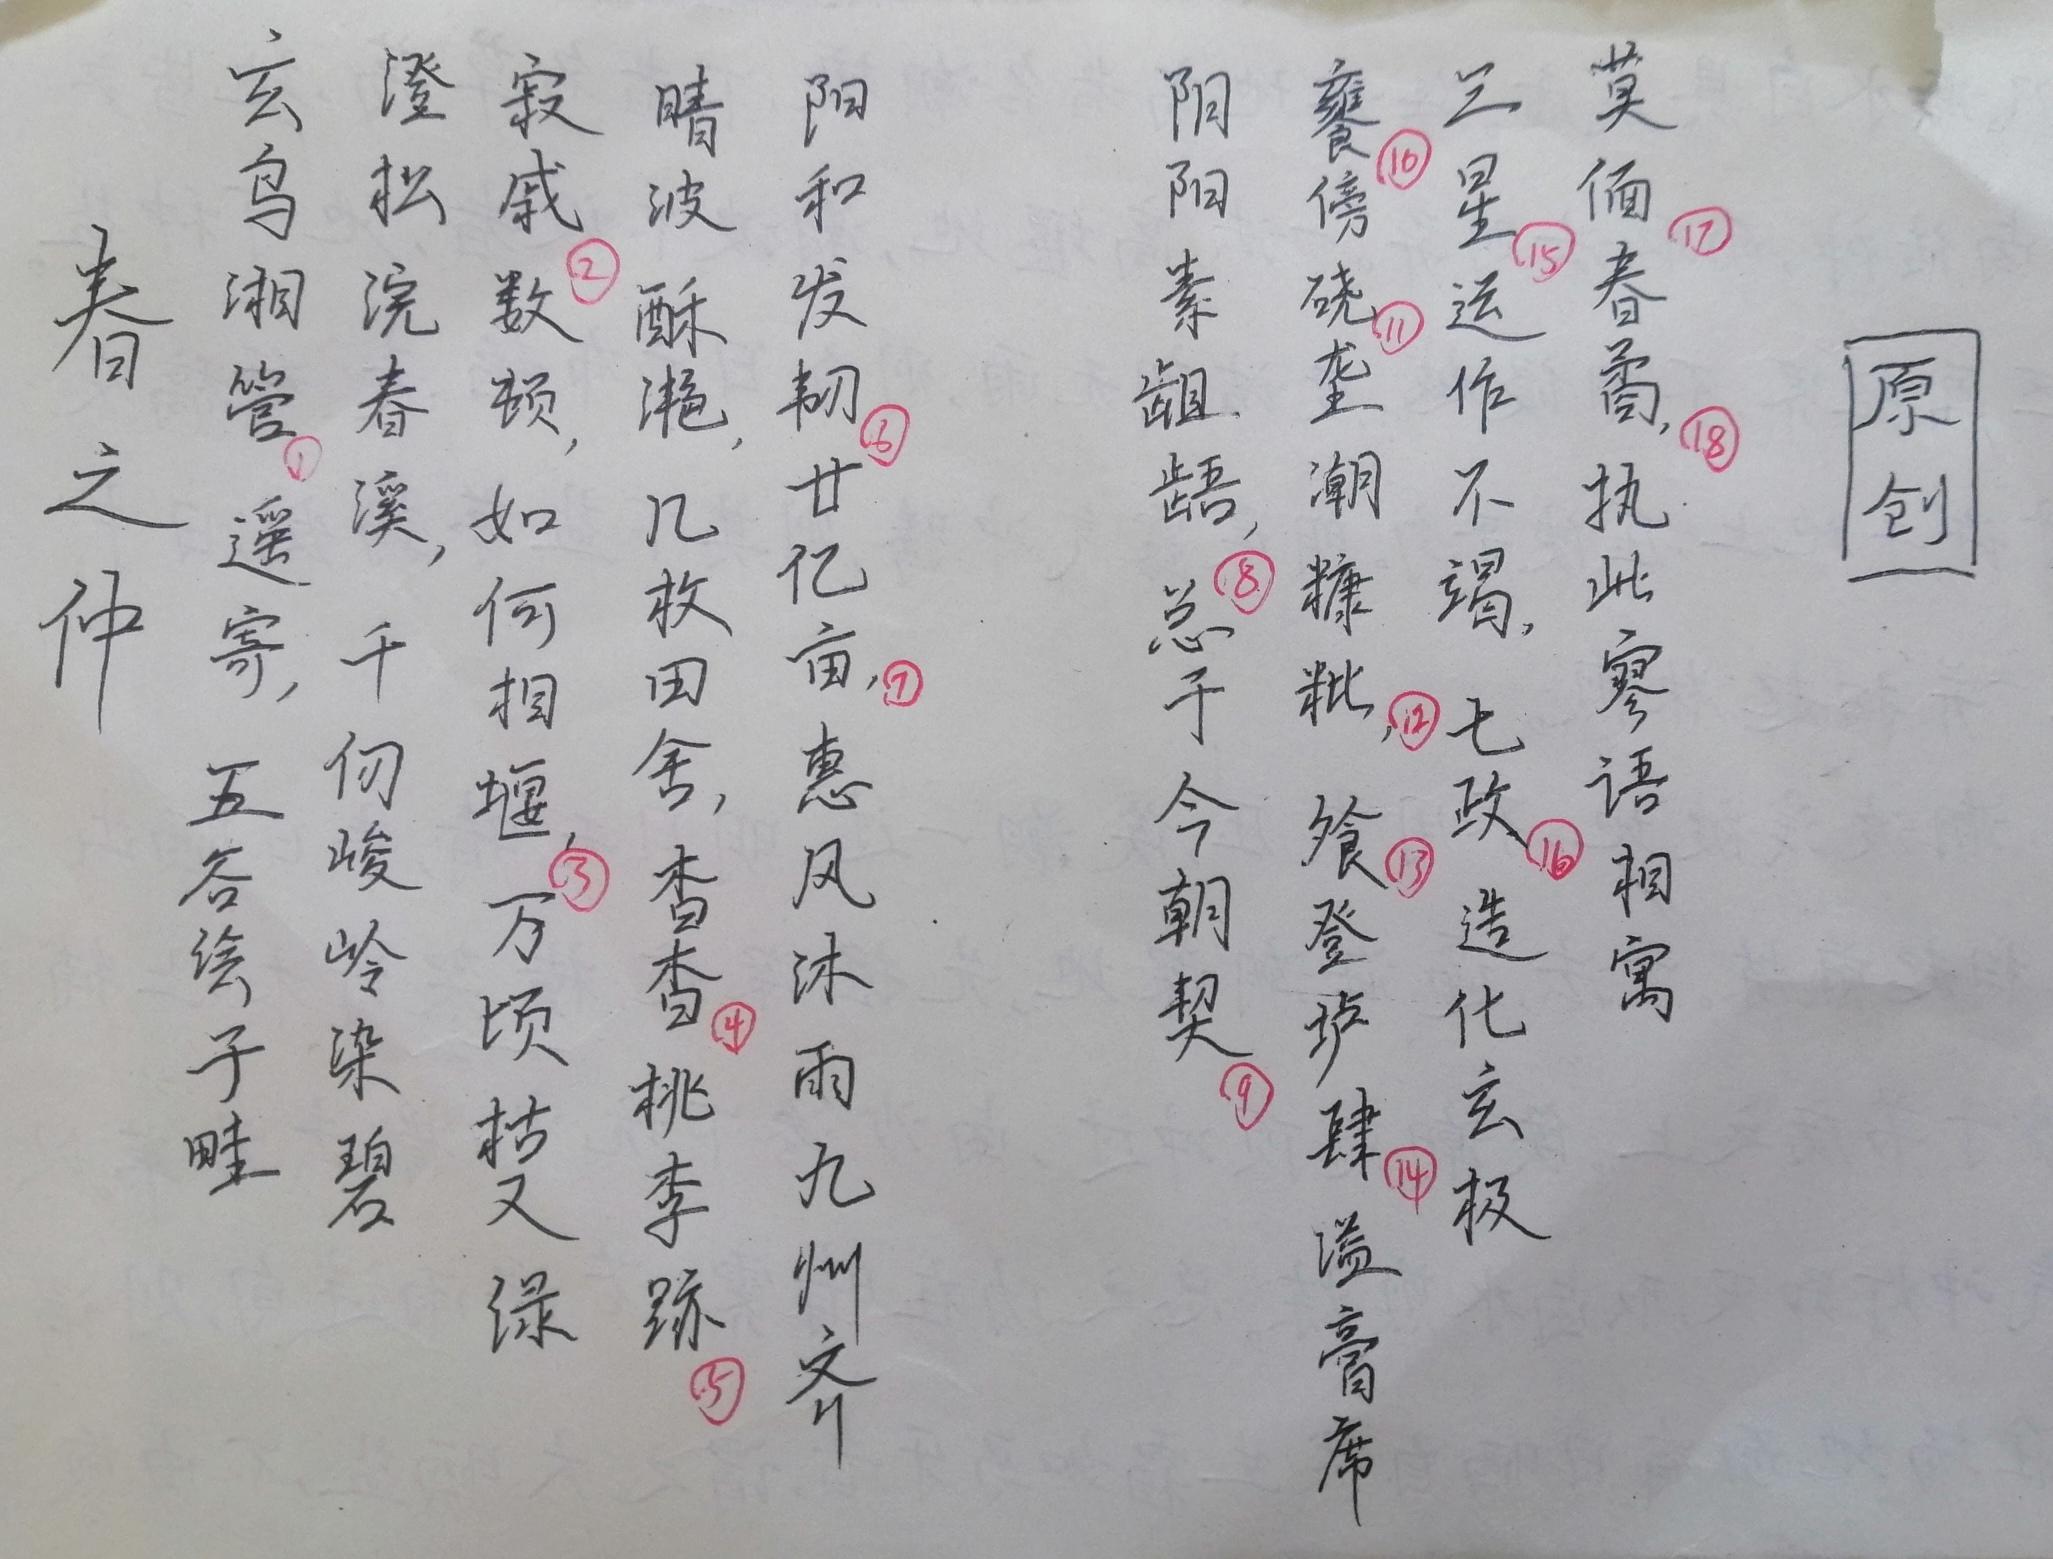 春之仲
玄鸟湘管①遥寄,五谷绘子畦
澄松浣春溪,千仞峻岭染碧
寂戚②数顿,如何相堰,③万顷枯又绿
晴波酥滟,几枚田舍,杳杳④桃李跡⑤
阳和发韧⑥廿亿亩,⑦惠风沐雨九州齐
阴阳素龃龉,⑧总于今朝契⑨
饔⑩傍硗⑪垄潮糠粃,⑫飧⑬登垆肆⑭溢膏席
三星⑮运作不竭,七政⑯造化玄极
莫偭⑰春矞,⑱执此寥语相寓
原创